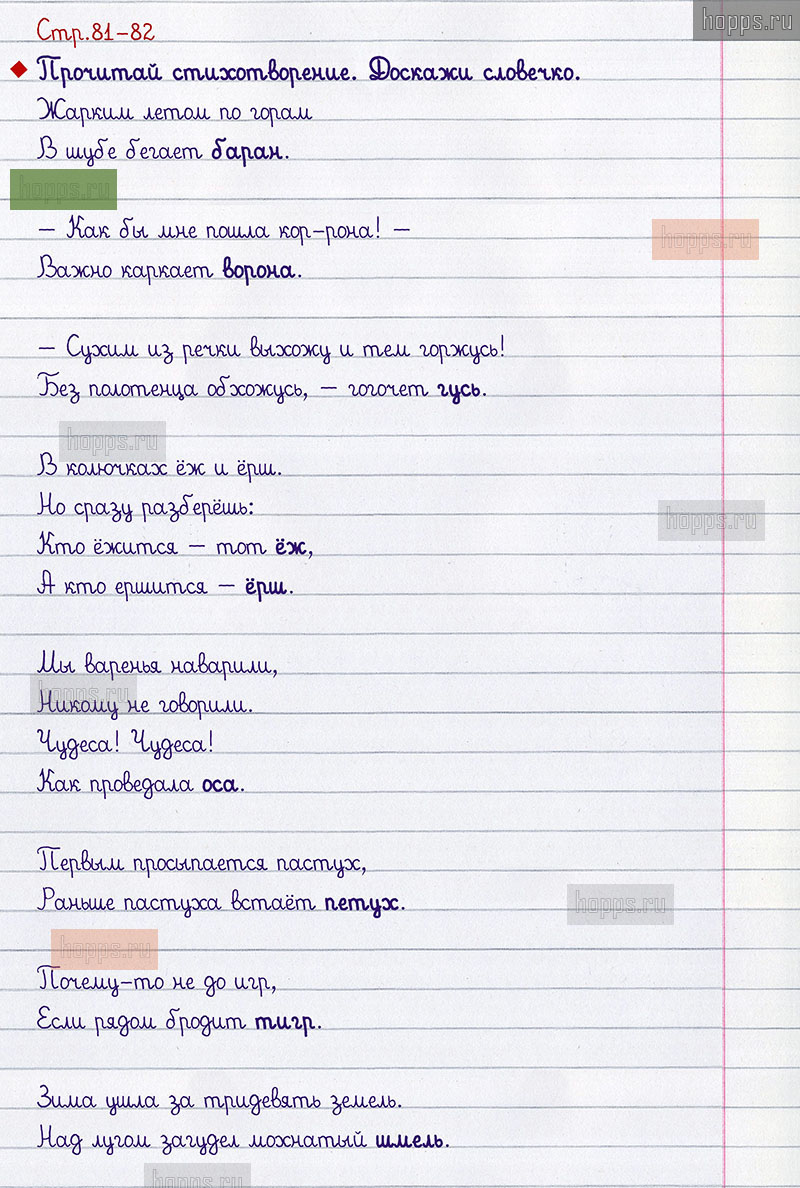 hopps.ru
Стр.81-82
Прочитай стихотворение. Доскажи словечко.
Жарким летом по горам
В шубе бегает баран.
hopps.ru
— Как бы мне пошла кор-рона! —
hopps.ru
Важно каркает ворона.
— Сухим из речки выхожу и тем горжусь!
Без полотенца обхожусь, — гогочет гусь.
hopps.ru
В колючках ёж и ёрш.
Но сразу разберёшь:
hopps.ru
Кто ёжится — тот ёж,
А кто ершится — ёрш.
Мы варенья наварили,
hopps.ru
Никому не говорили.
Чудеса! Чудеса!
Как проведала оса.
Первым просыпается пастух,
Раньше пастуха встаёт петух.
hopps.ru
hopps.ru
Почему-то не до игр,
Если рядом бродит тигр.
Зима ушла за тридевять земель.
Над лугом загудел мохнатый шмель.
hopps.ru